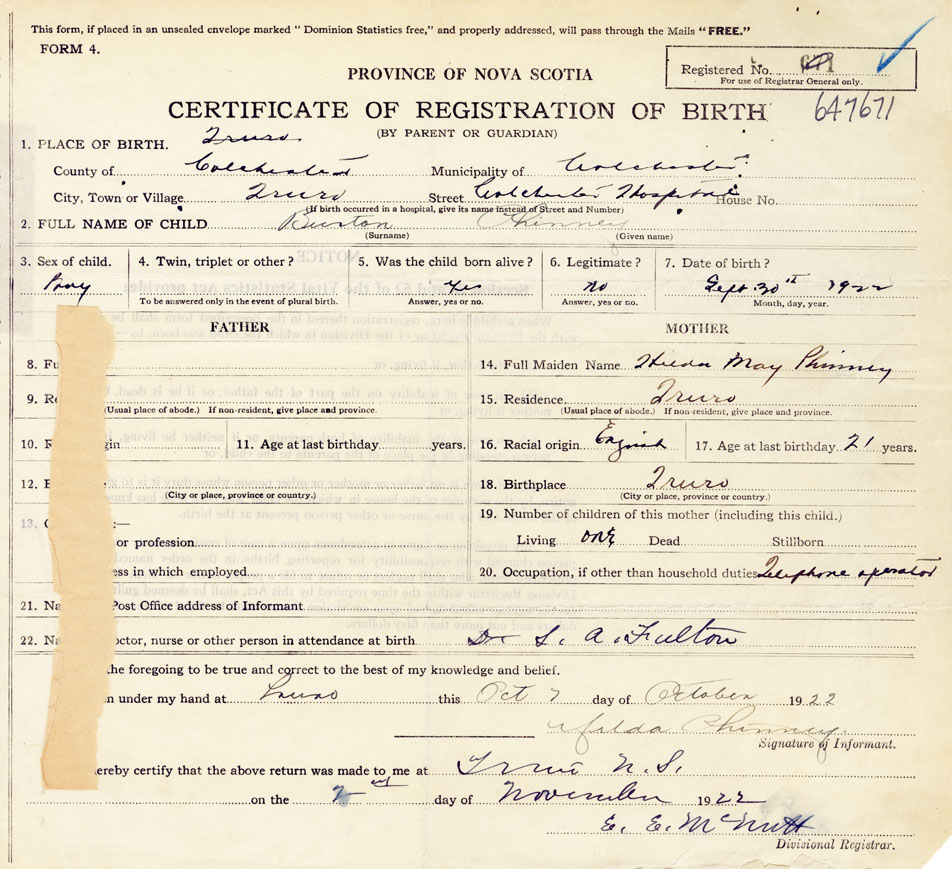 This form, if placed in an unsealed envelope marked “ Dominion Statistics free,” and properly addressed, will pass through the Mails “FREE.”
FORM 4.
Registered No. 671
For use of Registrar General only.
PROVINCE OF NOVA SCOTIA
CERTIFICATE OF REGISTRATION OF BIRTH
647671
(BY PARENT OR GUARDIAN)
1. PLACE OF BIRTH. Truro
County of Colchester Municipality of Colchester
City, Town or Village Truro Street Colchester Hospital House No.
(If birth occurred in a hospital, give its name instead of Street and Number)
2. FULL NAME OF CHILD Burton Phinney
(Surname) (Given name)
3. Sex of child. 4. Twin, triplet or other ? 5. Was the child born alive ? 6. Legitimate ? 7. Date of birth ?
Boy yes no Sept 30th 1922
To be answered only in the event of plural birth. Answer, yes or no. Answer, yes or no. Month, day, year.
FATHER MOTHER
8. Fu 14. Full Maiden Name Hilda May Phinney
9. Re 15. Residence Truro
(Usual place of abode.) If non-resident, give place and province. (Usual place of abode.) If non-resident, give place and province.
10. gin 11. Age at last birthday years. 16. Racial origin English 17. Age at last birthday 21 years.
12. 18. Birthplace Truro
(City or place, province or country.) (City or place, province or country.)
19. Number of children of this mother (including this child.)
13. :—
or profession Living one Dead Stillborn
ess in which employed 20. Occupation, if other than household duties Telephone operator
21. Na Post Office address of Informant
22. Na octor, nurse or other person in attendance at birth Dr S. A. Fulton
the foregoing to be true and correct to the best of my knowledge and belief.
n under my hand at Truro this Oct 7 day of October 1922
Hilda Phinney
Signature of Informant.
ereby certify that the above return was made to me at Truro N.S.
on the 2nd day of November 1922
E. E. McNutt
Divisional Registrar.